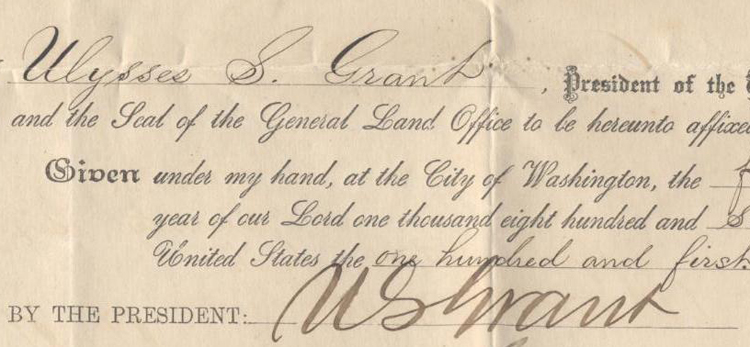 Ulysses S. Grant, President of the
and the Seal of the General Land Office to be hereunto affixed
Given under my hand, at the City of Washington, the
year of our Lord one thousand eight hundred and
United States the one hundred and first
BY THE PRESIDENT: U S Grant